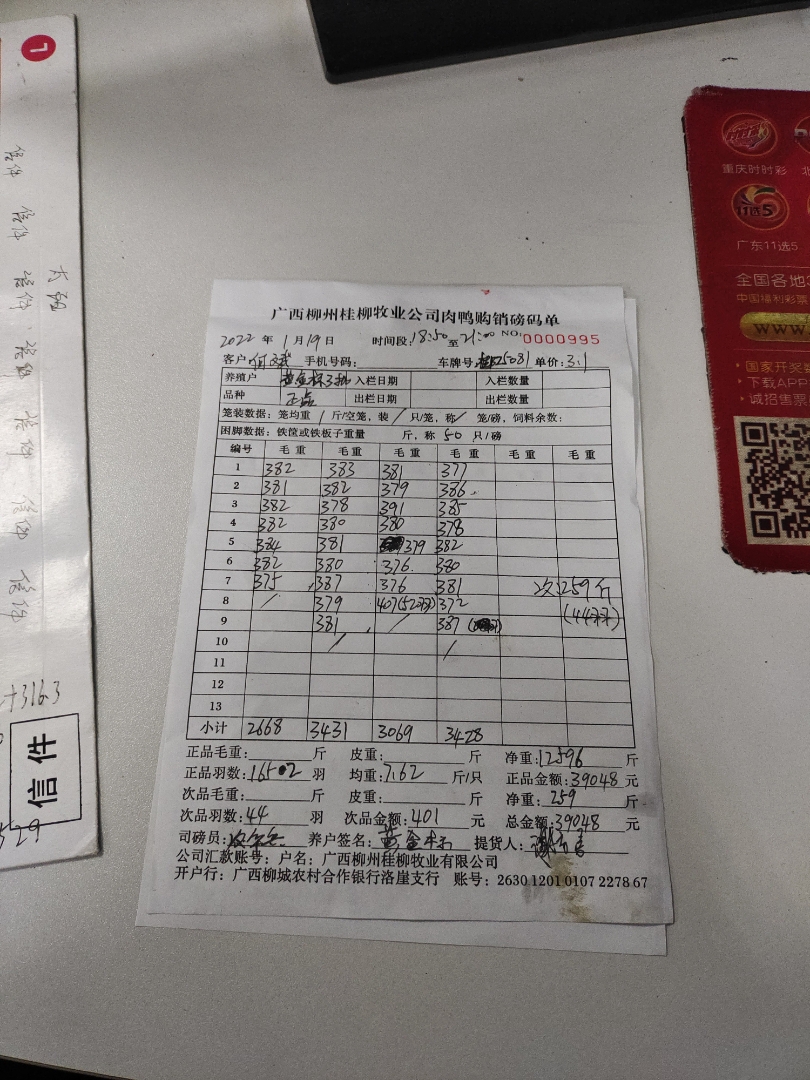 广西柳州桂柳牧业公司肉鸭购销磅码单
2022 年 1 月 19 日 时间段: 18:50 至 21:00 NO: 0000995
客户: 手机号码: 车牌号: 25081 单价: 3.1
养殖户 入栏日期 入栏数量
品种 正点 出栏日期 出栏数量
笼装数据: 笼均重 / 斤/空笼, 装 / 只/笼, 称 / 笼/磅, 饲料余数:
困脚数据: 铁筐或铁板子重量 斤, 称 50 只/磅
编号 毛重 毛重 毛重 毛重 毛重 毛重
1 382 383 381 377
2 381 382 379 386
3 382 378 391 385
4 382 380 380 378
5 384 381 379 382
6 382 380 376 380
7 375 387 376 381 次:259斤
8 / 379 407(52只) 372 (44只)
9 381 / 387
10 / /
11
12
13
小计 2668 3431 3069 3428
正品毛重: 斤 皮重: 斤 净重: 12596 斤
正品羽数: 1652 羽 均重: 7.62 斤/只 正品金额: 39048 元
次品毛重: 斤 皮重: 斤 净重: 259 斤
次品羽数: 44 羽 次品金额: 401 元 总金额: 39048 元
司磅员: 养户签名: 提货人:
公司汇款账号: 户名: 广西柳州桂柳牧业有限公司
开户行: 广西柳城农村合作银行洛崖支行 账号: 2630 1201 0107 2278 67
信件
信件
信件
信件
信件
+316.3
529
重庆时时彩
11选5
广东11选5
全国各地
中国福利彩票
www
国家开奖
下载APP
诚招售票